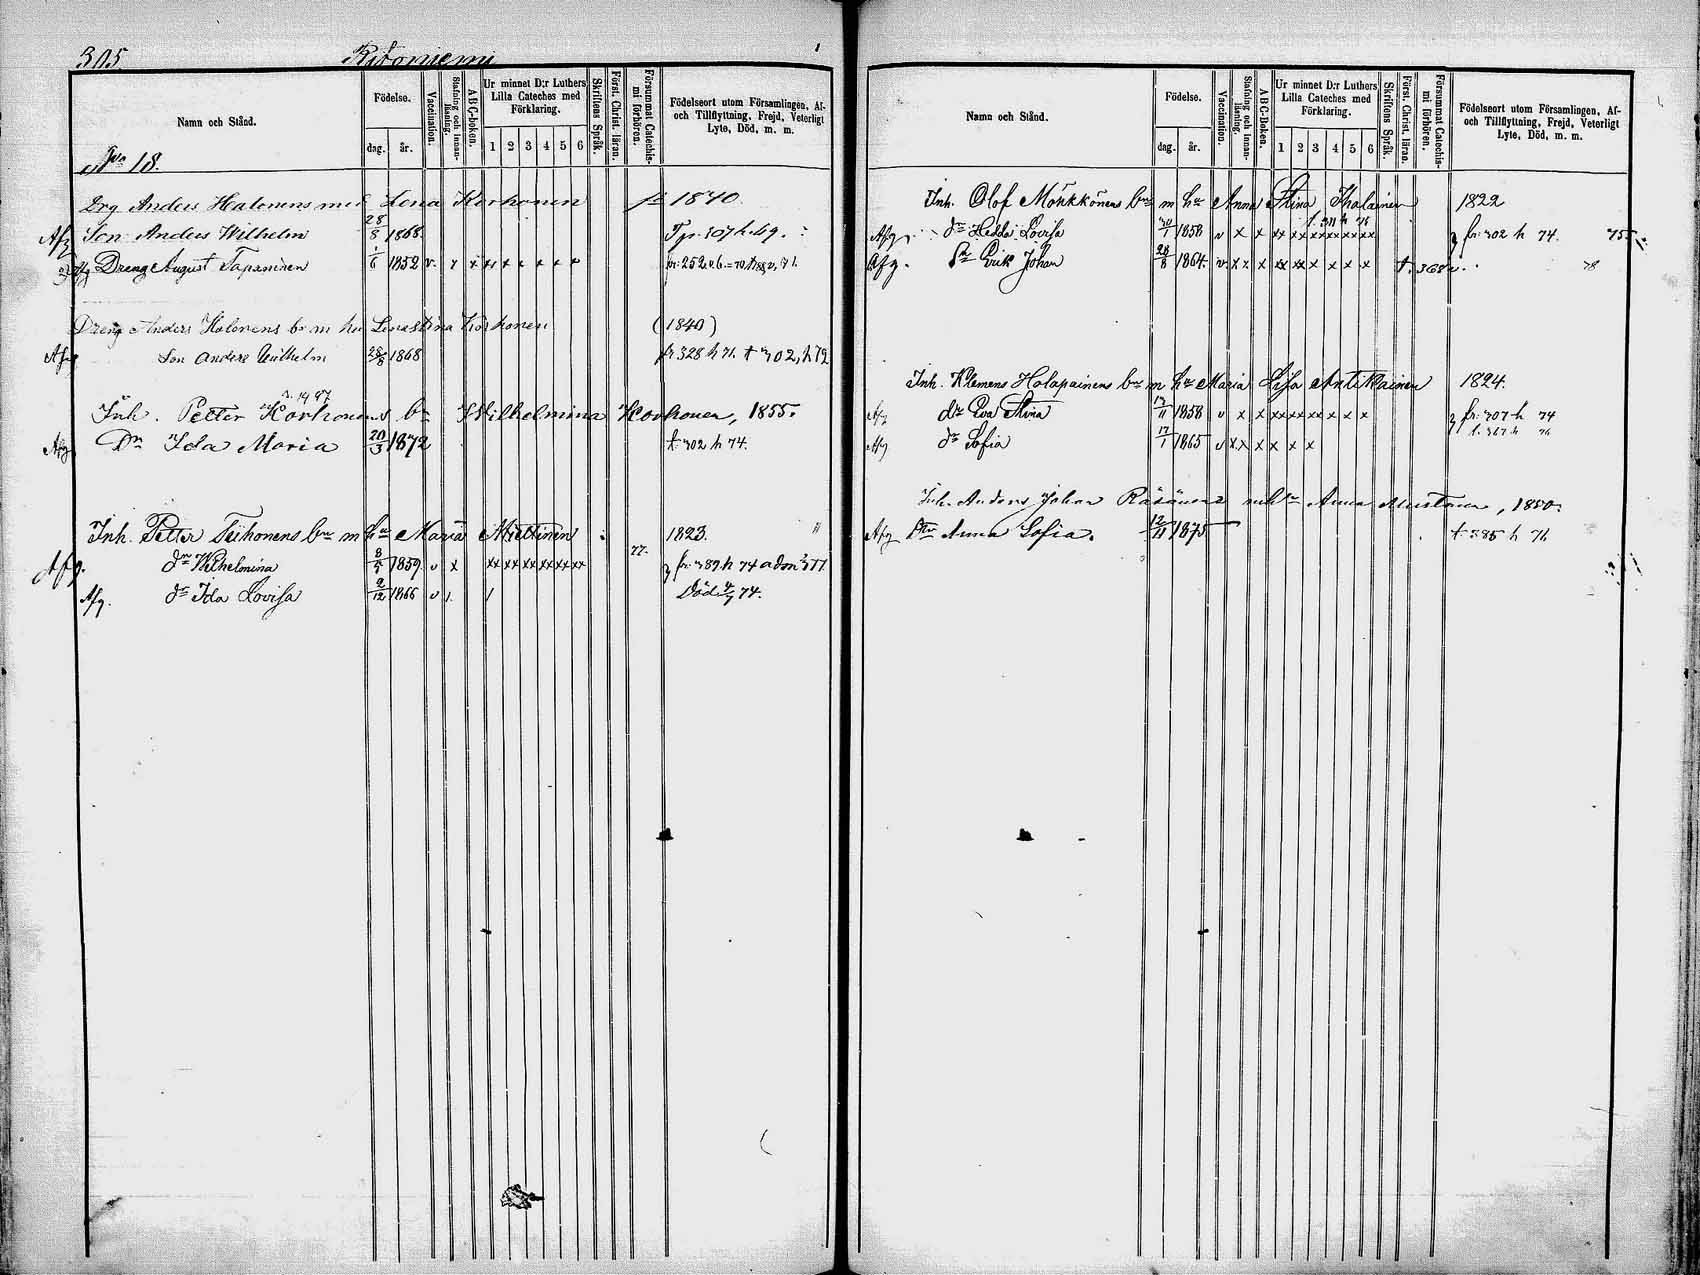 305. Ritoniemi
Namn och Stånd.
Födelse.
dag. år.
Vaccination.
Stafning och innanläsning.
A B C-boken.
Ur minnet D:r Luthers Lilla Cateches med Förklaring.
1 2 3 4 5 6
Skriftens Språk.
Först. Christ. läran.
Försummat Catechismi förhören.
Födelseort utom Församlingen, Af- och Tillflyttning, Frejd, Veterligt Lyte, Död, m. m.
No 18.
Drg Anders Halonens med Lena Korhonen 1840.
Afg Son Anders Wilhelm 28/8 1868.
Afg Dreng August Tapaninen 1/6 1852 v. x x xx x x x x
Dreng Anders Halonens br m hu Lenastina Korhonen (1840)
Afg Son Anders Wilhelm 28/8 1868 fr 328 h 71. t 302, h 72
Inh. Petter Korhonens br Wilhelmina Korhonen, 1855.
Afg Dr Ida Maria 20/3 1872 t. 302 h 74.
Inh. Petter Tiihonens br m hu Maria Miettinen 1823.
Afg. dr Wilhelmina 8/5 1859. v x xx xx xx xx xx xx 77.
Afg. dr Ida Lovisa 2/12 1866 v Död 4/7 74.
Namn och Stånd.
Födelse.
dag. år.
Vaccination.
Stafning och innanläsning.
A B C-Boken.
Ur minnet D:r Luthers Lilla Cateches med Förklaring.
1 2 3 4 5 6
Skriftens Språk.
Först. Christ. läran.
Försummat Catechismi förhören.
Födelseort utom Församlingen, Af- och Tillflyttning, Frejd, Veterligt Lyte, Död, m. m.
Inh. Olof Mönkkönens br m hu Anna Stina Ihalainen 1822
Afg. dr Hedda Lovisa 1858 v x x xx xx xx xx xx xx fr. 302 h 74. 75
Afg. Sn Erik Johan 28/8 1864. v x x x xx xx x x x x t. 368 78
Inh. Klemens Holapainens br m hu Maria Lisa Antikainen 1824.
Afg dr Eva Stina 1858 v x x xx xx xx x x x fr. 307 h 74
Afg dr Sofia 17/1 1865 v x x x x x x t. 367 h 76
Inh. Anders Johan Räsänens Anna Mustonen, 1850.
Afg Dtr Anna Sofia. 12/11 1875 t 385 h 76